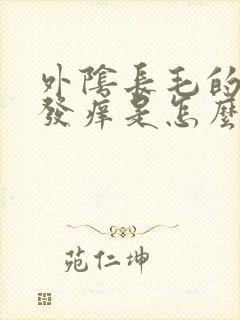 外陰長毛的
發痒是怎麼
苑仁坤